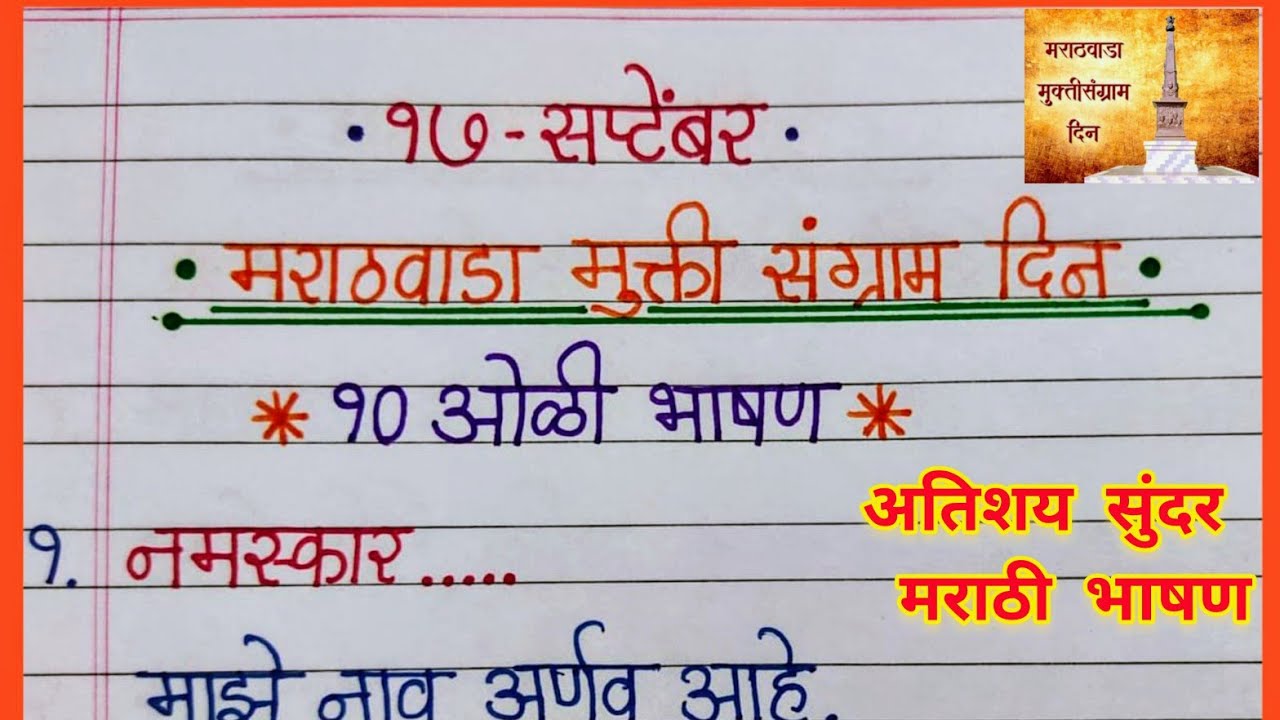 मराठवाडा
मुक्तीसंग्राम
दिन
• १७ - सप्टेंबर •
• मराठवाडा मुक्ती संग्राम दिन •
* १० ओळी भाषण *
अतिशय सुंदर
मराठी भाषण
१. नमस्कार .....
माझे नाव अर्णव आहे.